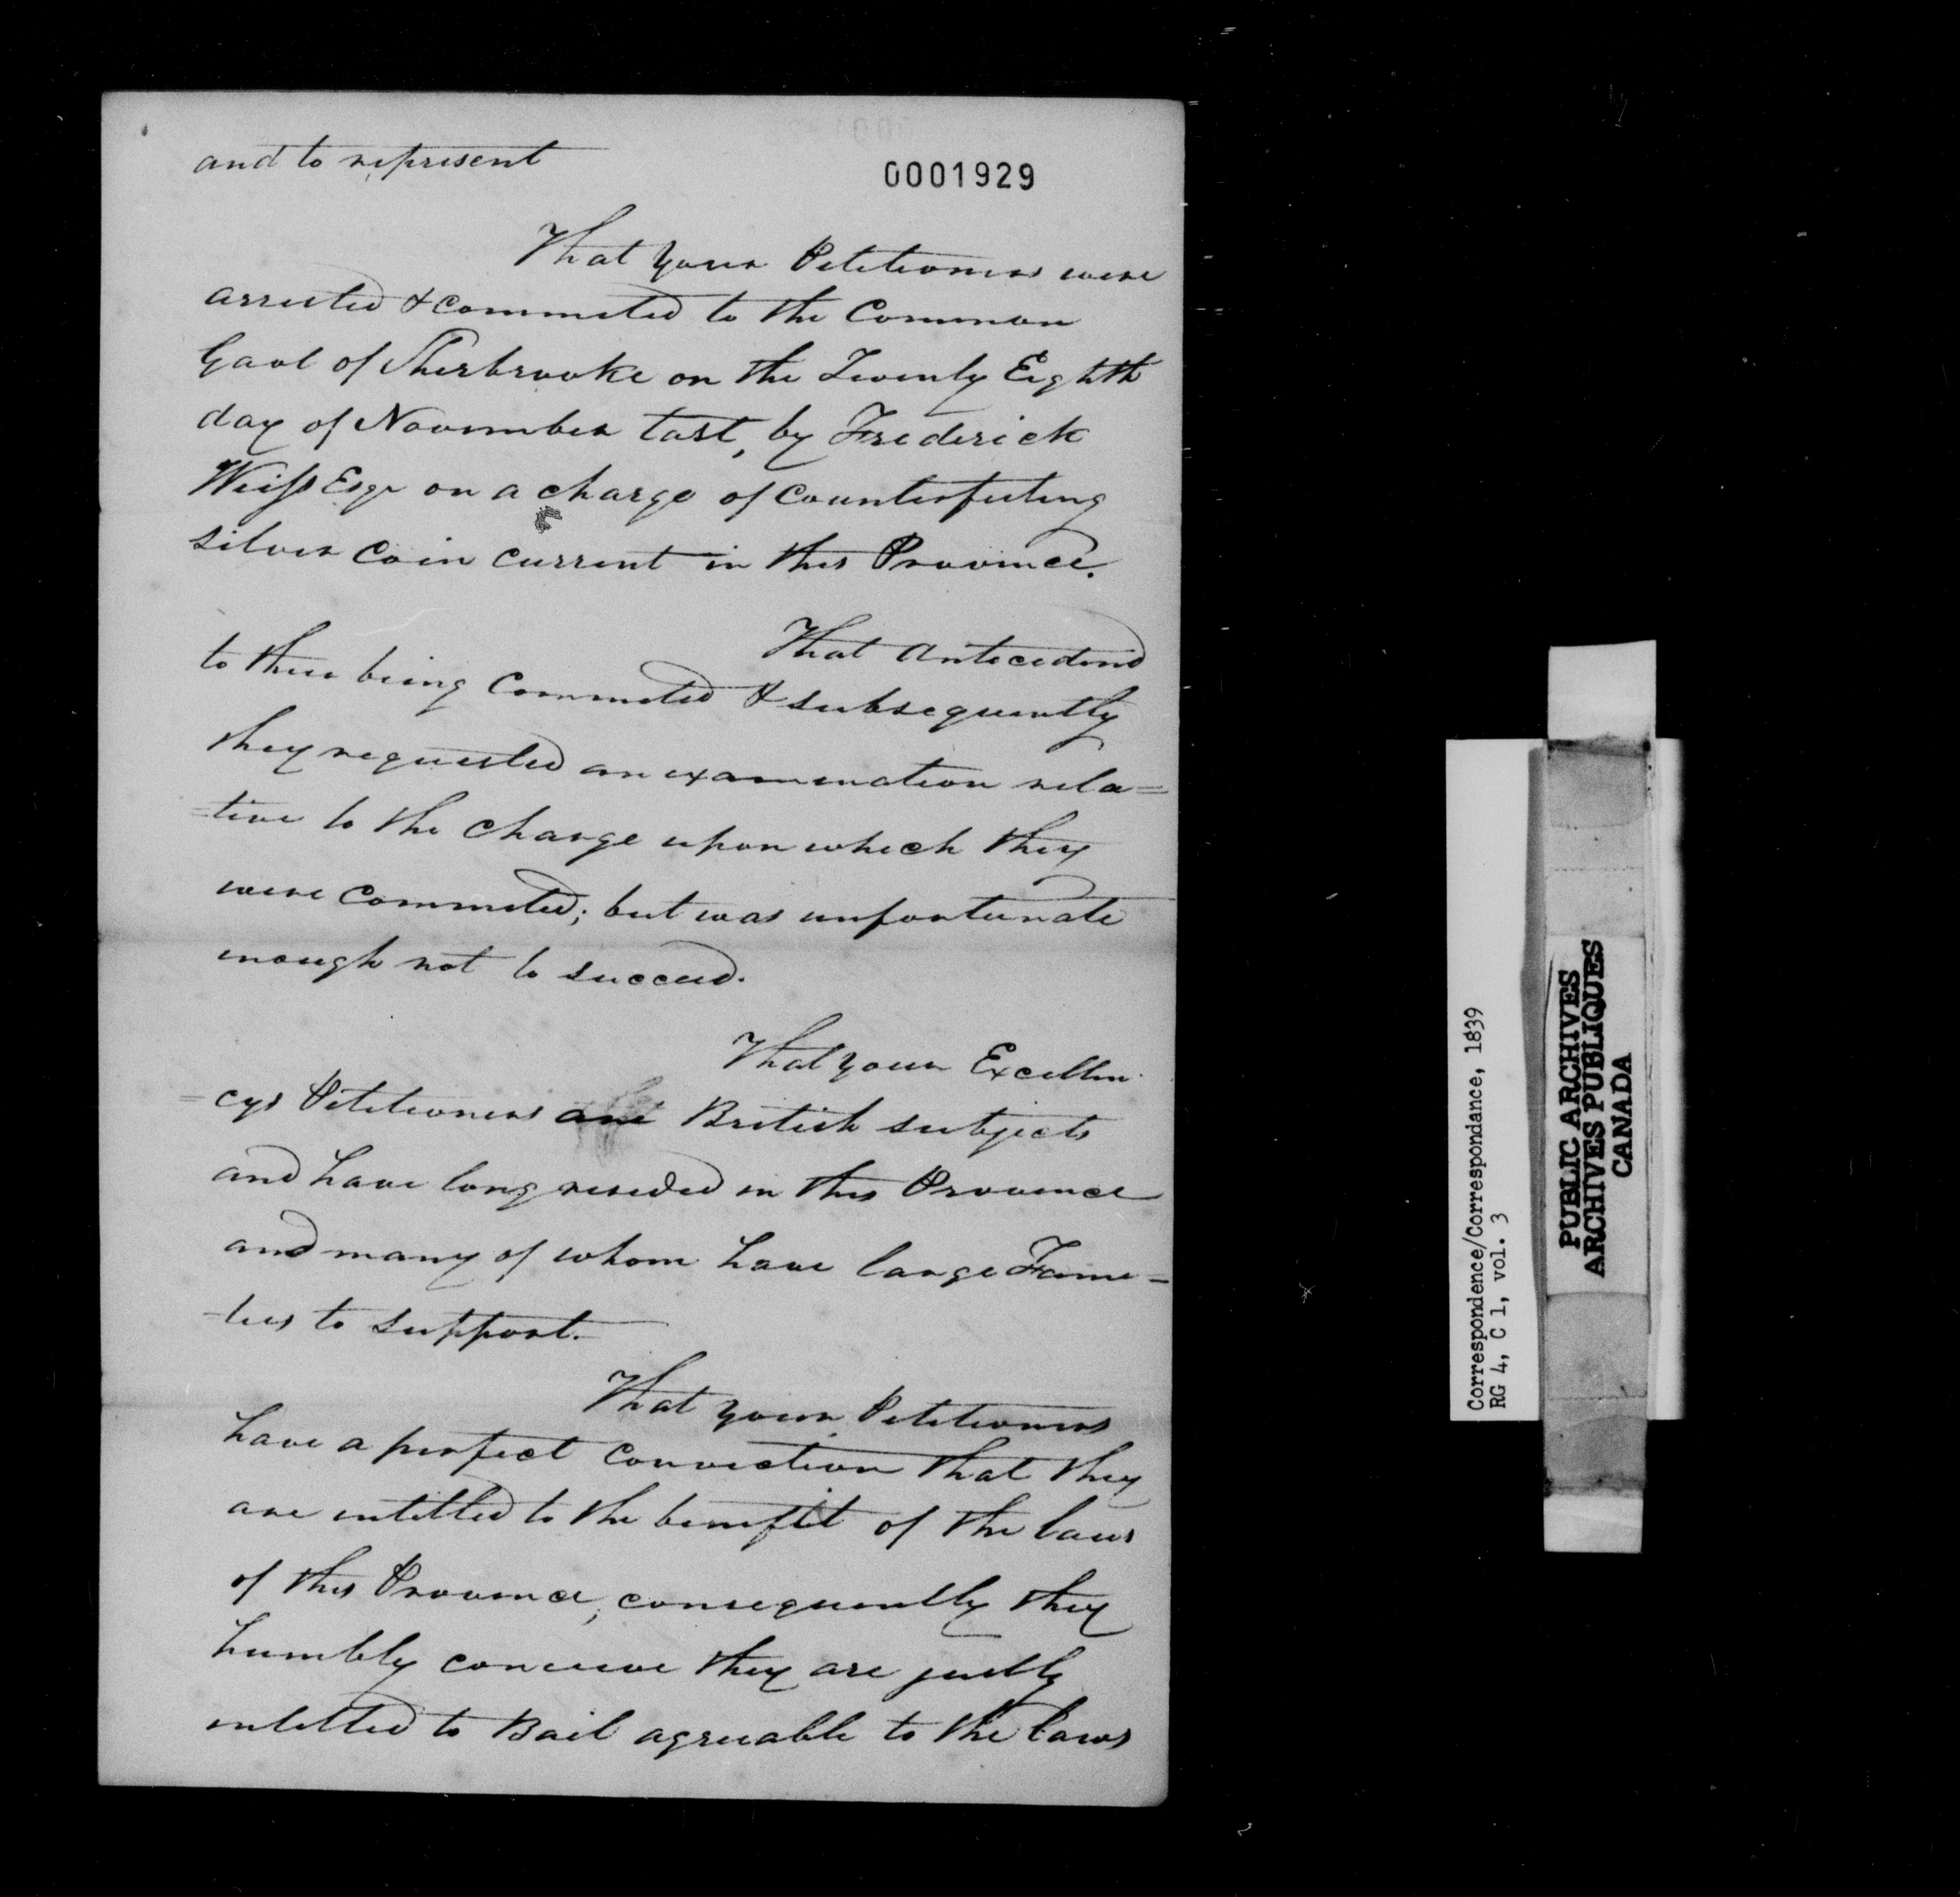 and to represent
0001929
That your Petitioners were
arrested & commited to the Common
Gaol of Sherbrooke on the Twenty Eighth
day of November last, by Frederick
Weiss Esqr on a charge of counterfeiting
silver coin current in this Province.
That Antecedend
to their being Commited & subsequently
they requested an examination rela=
=tive to the charge upon which they
were Commited; but was unfortunate
enough not to succeed.
That your Excellen
=cys Petitioners are British subjects
and have long resided in this Province
and many of whom have large Fami-
-lies to support.
That your Petitioners
have a perfect conviction that they
are entitled to the benefit of the laws
of this Province, consequently they
humbly conceive they are justly
entitled to Bail agreeable to the laws
Correspondence/Correspondance, 1839
RG 4, C 1, vol. 3
PUBLIC ARCHIVES
ARCHIVES PUBLIQUES
CANADA